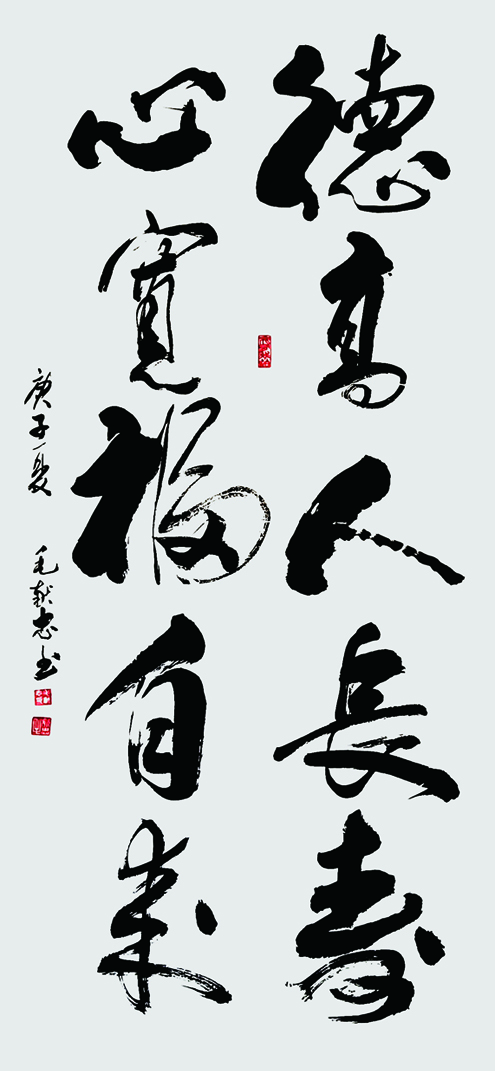 德高人長壽
心寬福自來
庚子夏 毛献忠书